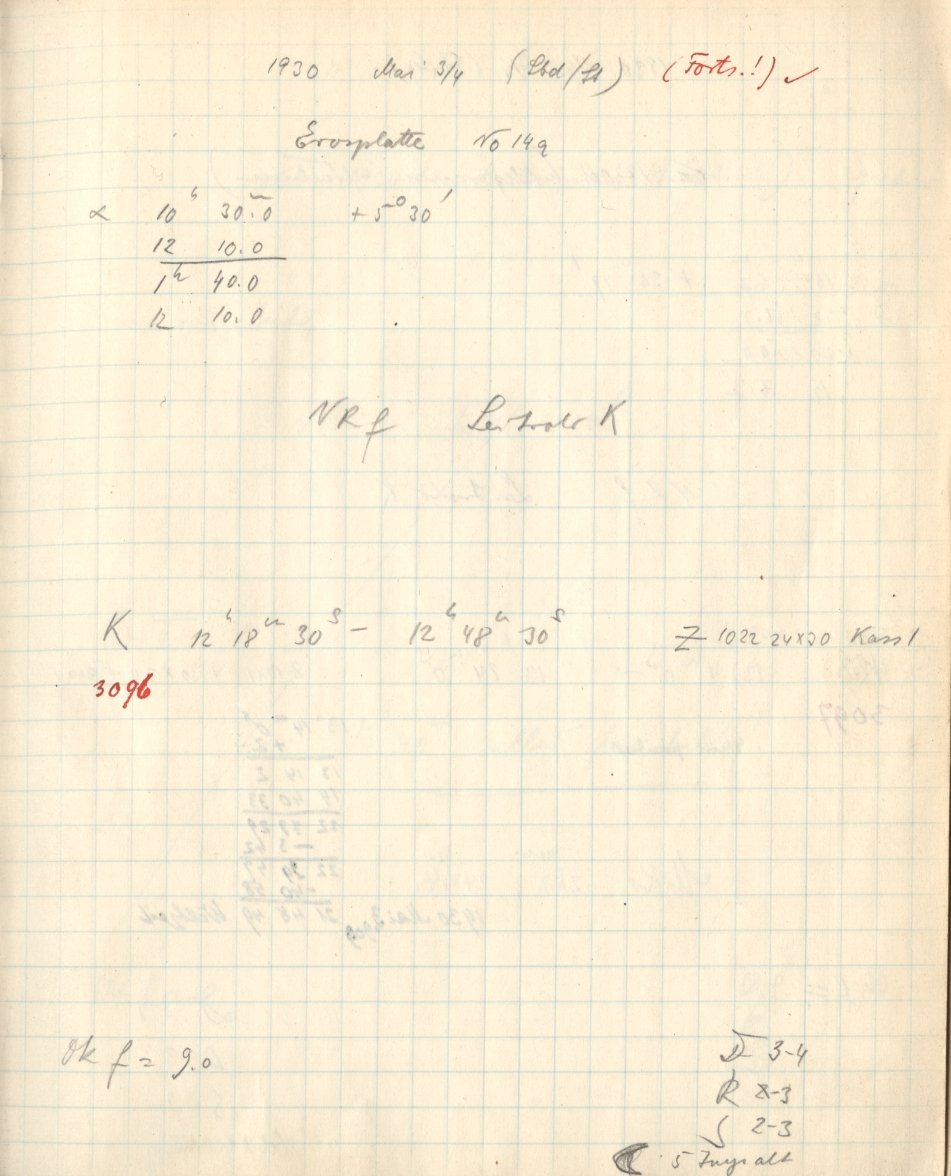 1930 Mai 3/4 (Lbd/St) (Forts.!) ✓
Erosplatte No 149
α 10ʰ 30ᵐ.0 +5⁰30'
12 10.0
1ʰ 40.0
12 10.0
NRf Leitrohr K
K 12ʰ 18ᵐ 30ˢ – 12ʰ 48ᵐ 30ˢ Z 1022 24x30 Kass 1
3096
Ok f = 9.0
D 3-4
R 2-3
S 2-3
☾ 5 Tage alt